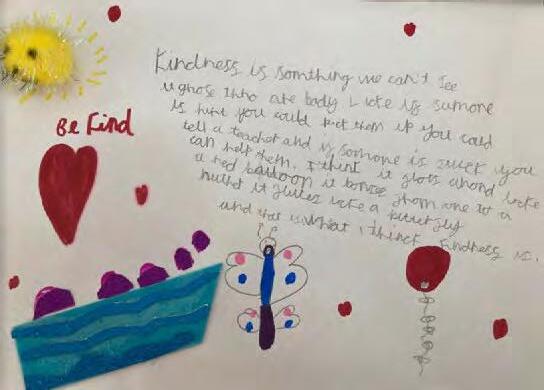 Kindness is somthing we can't see
ughose thro are body Like if sumone
is hurt you could pict them up you could
tell a teacher and if somone is stuck you
can help them. I thinf it flots arond like
a red balloon it bonse from one to a
nuthd it fluters like a butterfly
and that is what i thinck kindness is.
Be kind